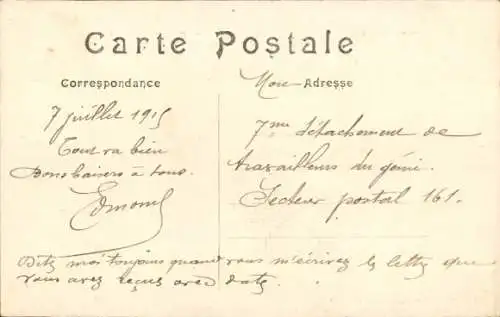 Carte Postale
Correspondance
7 juillet 1915
Tout va bien
Bons baisers à tous.
Edmond
Mon Adresse
7me détachement de
travailleurs du génie.
Secteur postal 161.
Dites moi toujours quand vous m'écrirez les lettres que
vous avez reçues avec date